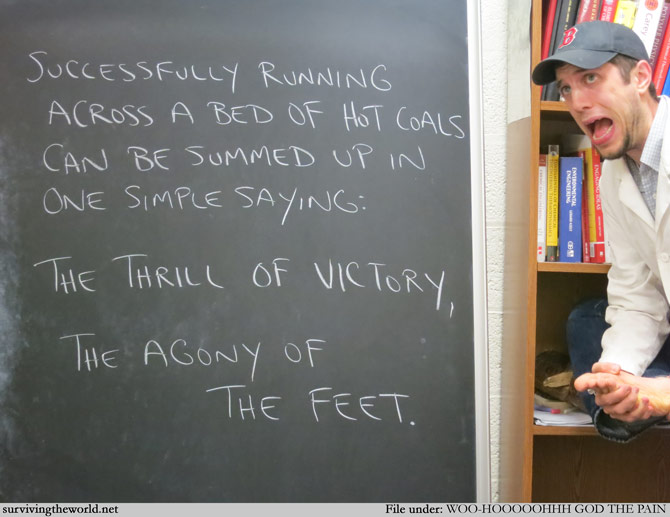 SUCCESSFULLY RUNNING
ACROSS A BED OF HOT COALS
CAN BE SUMMED UP IN
ONE SIMPLE SAYING:
THE THRILL OF VICTORY,
THE AGONY OF
THE FEET.
B
Casey
ENVIRONMENTAL ENGINEERING
ENGAGING IDEAS
survivingtheworld.net
File under: WOO-HOOOOOHHH GOD THE PAIN